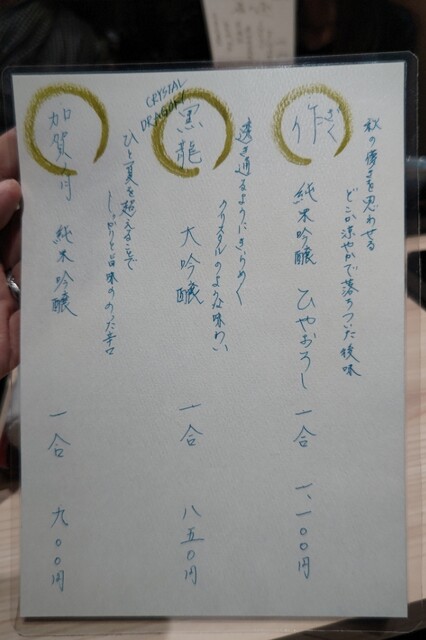 秋の儚さを思わせる
どこか涼やかで落ちついた後味
作 ざく 純米吟醸 ひやおろし 一合 一、一〇〇円
透き通るようにきらめく
クリスタルのような味わい
CRYSTAL
DRAGON
黒龍 大吟醸 一合 八五〇円
ひと夏を越えることで
しっかりと旨味ののった辛口
加賀ノ月 純米吟醸 一合 九〇〇円